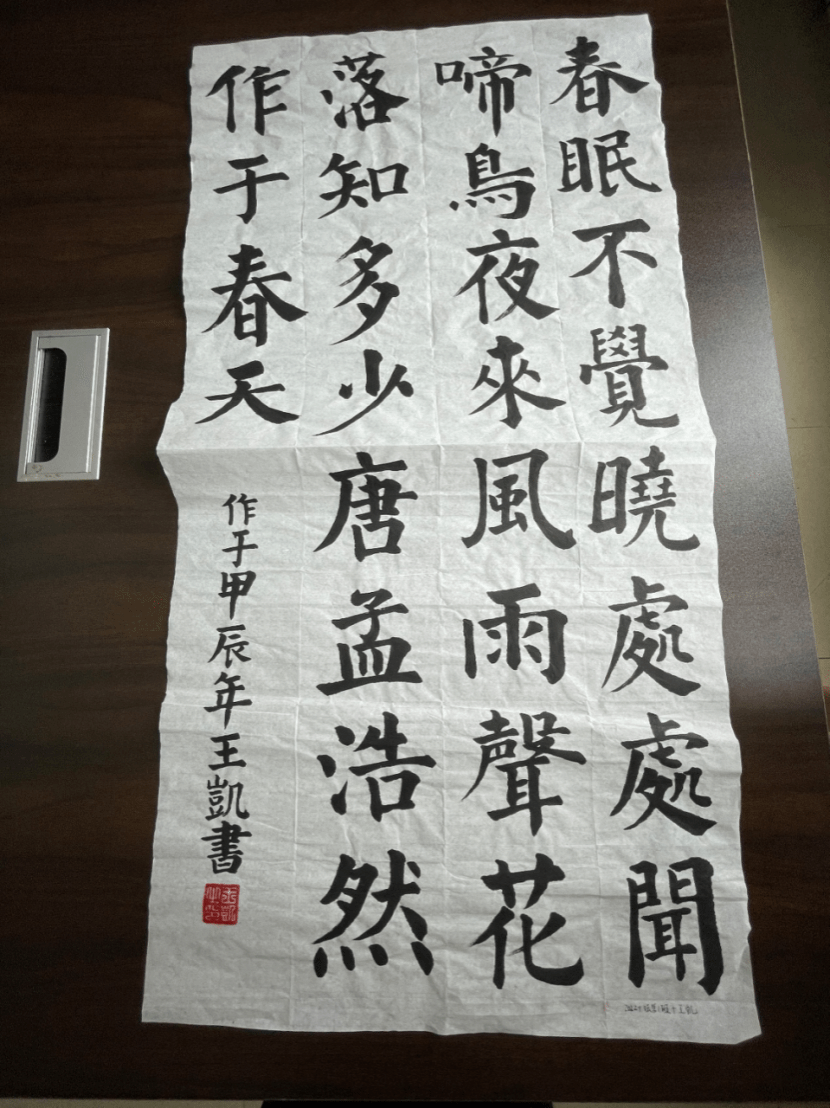 春眠不覺曉處處聞
啼鳥夜來風雨聲花
落知多少唐孟浩然
作于春天
作于甲辰年王凱書